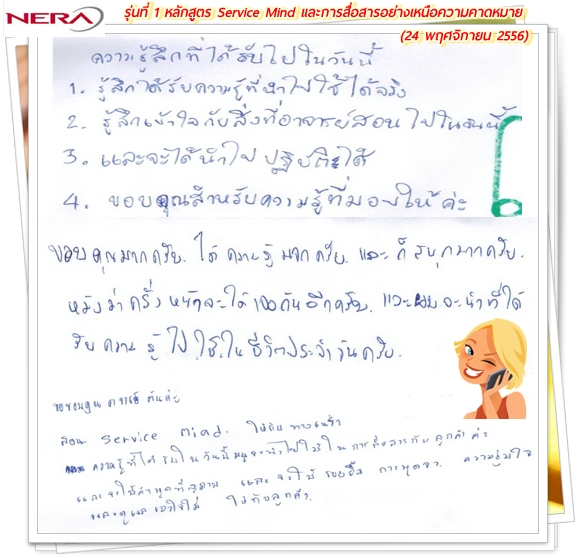 NERA
รุ่นที่ 1 หลักสูตร Service Mind และการสื่อสารอย่างเหนือความคาดหมาย
(24 พฤศจิกายน 2556)
ความรู้สึกที่ได้รับไปในวันนี้
1. รู้สึกได้รับความรู้ที่นำไปใช้ได้จริง
2. รู้สึกเข้าใจกับสิ่งที่อาจารย์สอนไปในวันนี้
3. และจะได้นำไปปฏิบัติได้
4. ขอบคุณสำหรับความรู้ที่มอบให้ค่ะ
ขอบคุณมากครับ. ได้ความรู้มากครับ. และ ก็สนุกมากครับ.
หวังว่าครั้งหน้าจะได้เจอกันอีกครับ. และผมจะนำที่ได้
รับความรู้ไปใช้ในชีวิตประจำวันครับ.
ขอขอบคุณ อาจารย์
สอน Service Mind. ให้กับทาง
ความรู้ที่ได้รับในวันนี้หนูจะนำไปใช้ในการสื่อสารกับลูกค้าค่ะ
และจะใช้คำพูดที่สุภาพ และจะใช้รอยยิ้ม การพูดจา. ความอุ่นใจ
และดูแลเอาใจใส่ ให้กับลูกค้า.